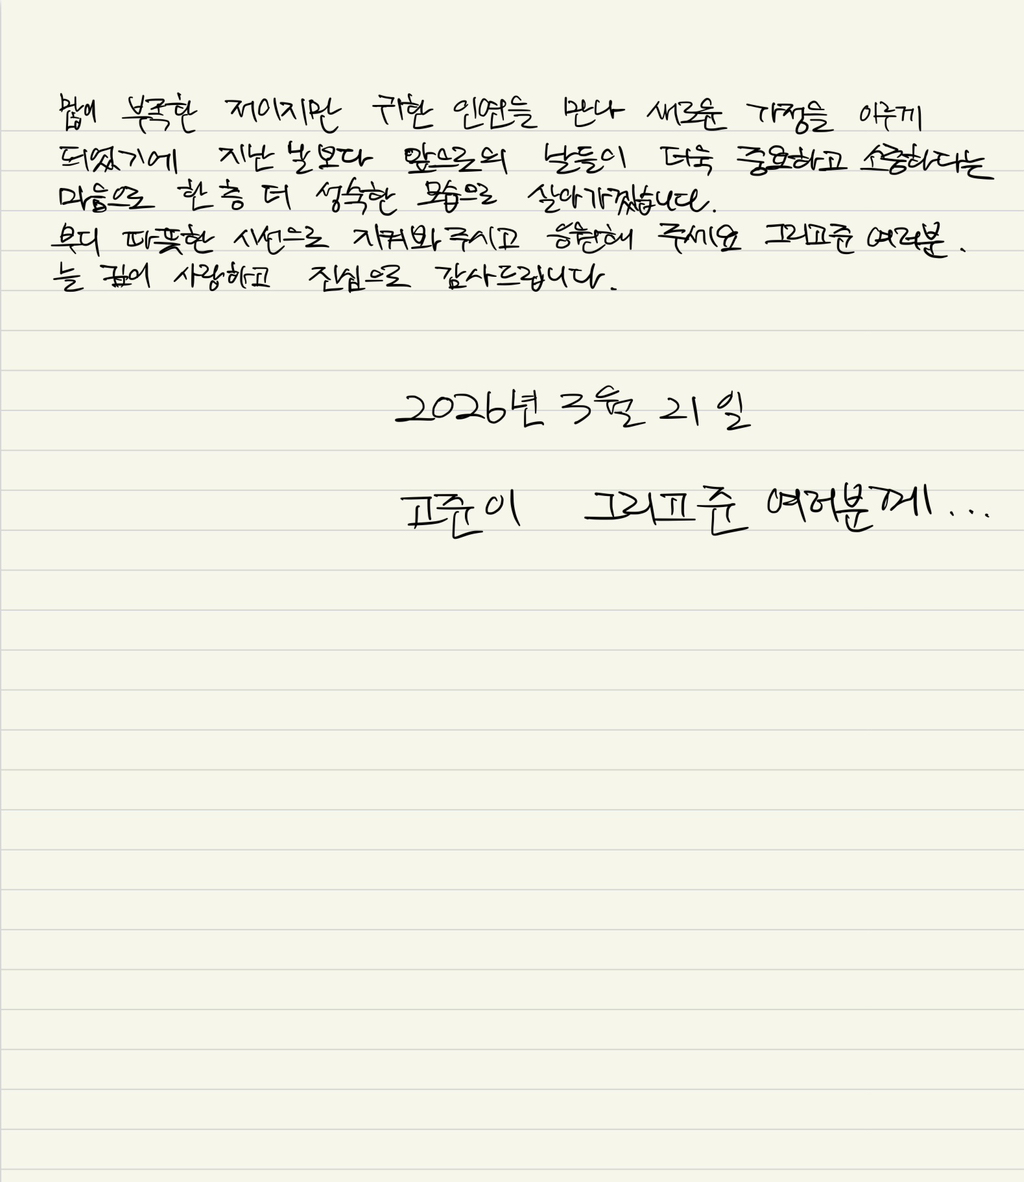 많이 부족한 저이지만 귀한 인연을 만나 새로운 가정을 이루게
되었기에 지난 날보다 앞으로의 날들이 더욱 중요하고 소중하다는
마음으로 한 층 더 성숙한 모습으로 살아가겠습니다.
부디 따뜻한 시선으로 지켜봐주시고 응원해 주세요 그리고준 여러분.
늘 깊이 사랑하고 진심으로 감사드립니다.
2026년 3월 21일
고준이 그리고준 여러분께...